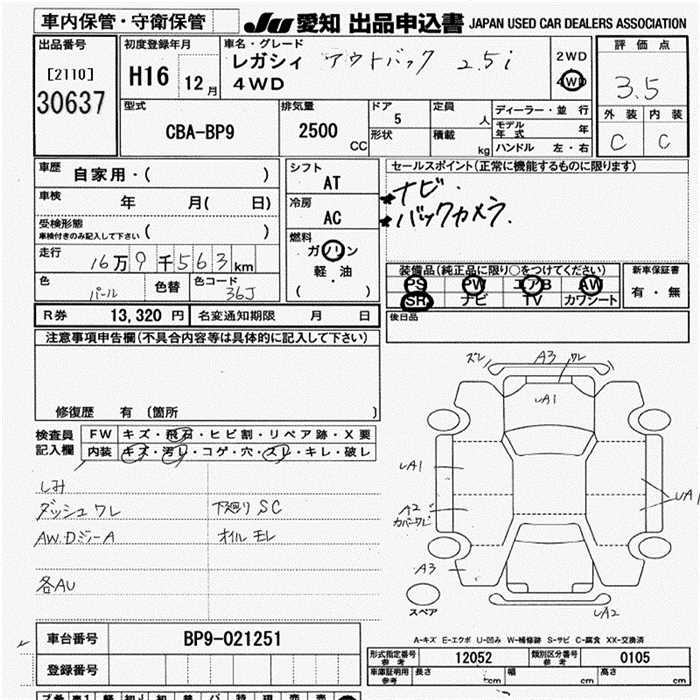 車内保管・守衛保管
JU 愛知 出品申込書 JAPAN USED CAR DEALERS ASSOCIATION
出品番号
[2110]
30637
初度登録年月
H16 12月
車名・グレード
レガシィ アウトバック 2.5i
4WD
2WD
4WD
評価点
3.5
外装 内装
C C
型式
CBA-BP9
排気量
2500 CC
ドア
5
形状
定員
人
積載
kg
ディーラー・並行
モデル年式 年
ハンドル 左・右
車歴
自家用・( )
車検
年 月( 日)
受検形態
車検付きのみ記入して下さい ( )
走行
16万9千563km
色
パール
色替
色コード
36J
シフト
AT
冷房
AC
燃料
ガソリン
軽・油
( )
セールスポイント(正常に機能するものに限ります)
ナビ.
バックカメラ.
装備品(純正品に限り○をつけてください)
PS PW エアB AW
SR ナビ TV カワシート
新車保証書
有・無
後日品
R券 13,320円 名変通知期限 月 日
注意事項申告欄(不具合内容等は具体的に記入して下さい)
修復歴 有 (箇所 )
検査員
記入欄
FW キズ・飛石・ヒビ割・リペア跡・X要
内装 キズ・汚レ・コゲ・穴・スレ・キレ・破レ
しみ
ダッシュワレ 下廻りSC
AW.DジーA オイルモレ
各AU
ズレ A3 ワレ
UA1
UA1
UA1
A2
A3
UA2
スペア
A-キズ E-エクボ U-凹み W-補修跡 S-サビ C-腐食 XX-交換済
車台番号 BP9-021251
登録番号
形式指定番号 参考 12052
類別区分番号 参考 0105
車庫証明用 参考 長さ cm 幅 cm 高さ cm